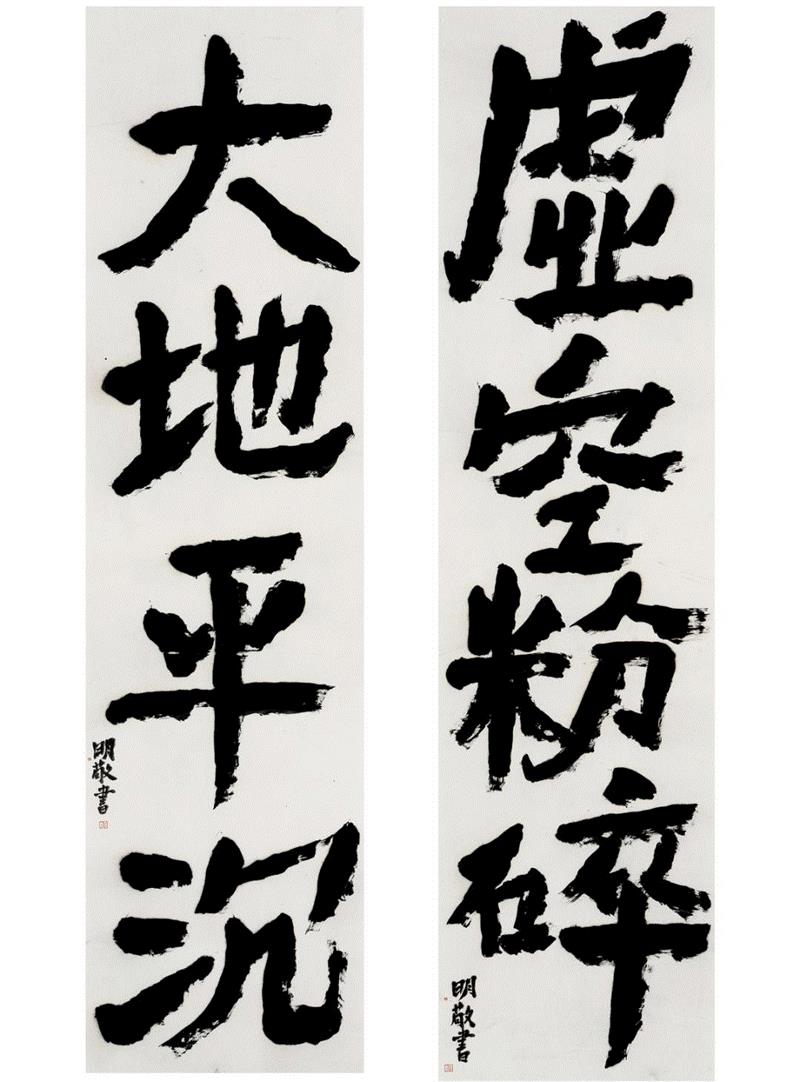 虛空粉碎
明敬書
大地平沉
明敬書